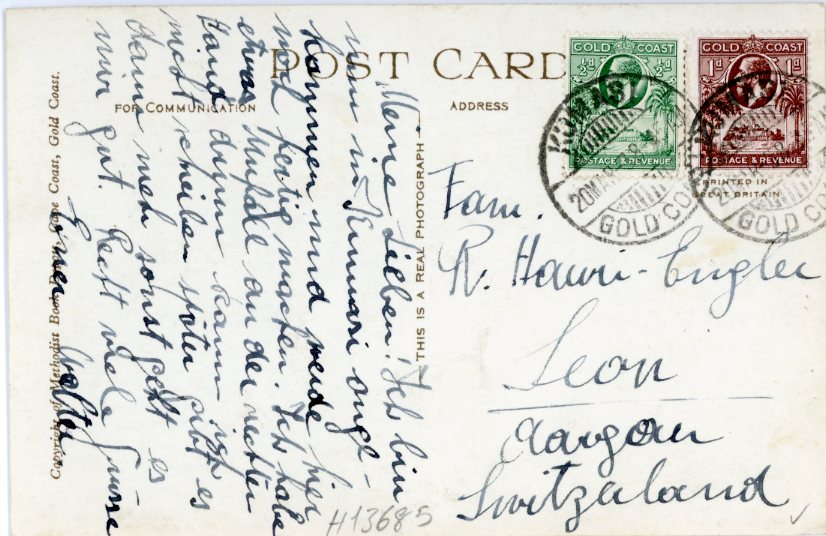 POST CARD
FOR COMMUNICATION
ADDRESS
Meine Lieben! Ich bin
nun in Kumasi ange-
kommen und werde hier
noch fertig machen. Ich habe
etwas an der rechten
Hand darum kann ich
nicht schreiben später gibt es
dann mehr sonst geht es
mir gut. Recht viele Grüsse
Euer Walter
Copyright of Methodist Book Depot, Cape Coast, Gold Coast.
THIS IS A REAL PHOTOGRAPH
GOLD COAST
½d ½d
POSTAGE & REVENUE
GOLD COAST
1d 1d
POSTAGE & REVENUE
PRINTED IN
GREAT BRITAIN
KUMAS
20 MA
GOLD CO
KUMAS
GOLD CO
Fam.
R. Hauri-Engler
Seon
Aargau
Switzerland
H13685